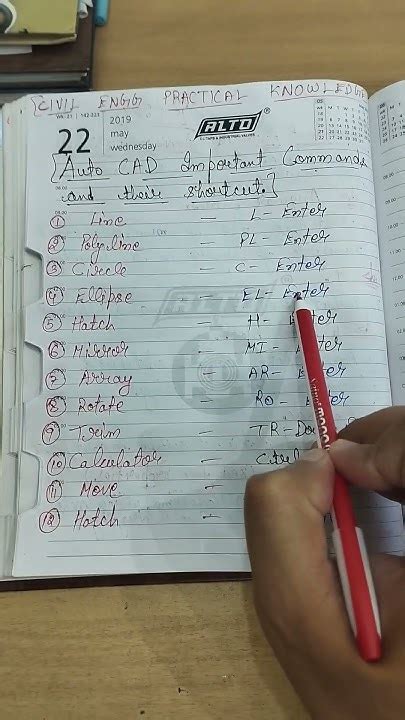 CIVIL ENGG PRACTICAL KNOWLEDGE
WK-21 142-223
22
2019
may
wednesday
ALTO®
[Auto CAD Important Commands
and their shortcuts]
① Line - L - Enter
② Polyline - PL - Enter
③ Circle - C - Enter
④ Ellipse - EL - Enter
⑤ Hatch - H - Enter
⑥ Mirror - MI - Enter
⑦ Array - AR - Enter
⑧ Rotate - RO - Enter
⑨ Trim - TR - Do
⑩ Calculator - Ctrl
⑪ Move -
⑫ Hatch -